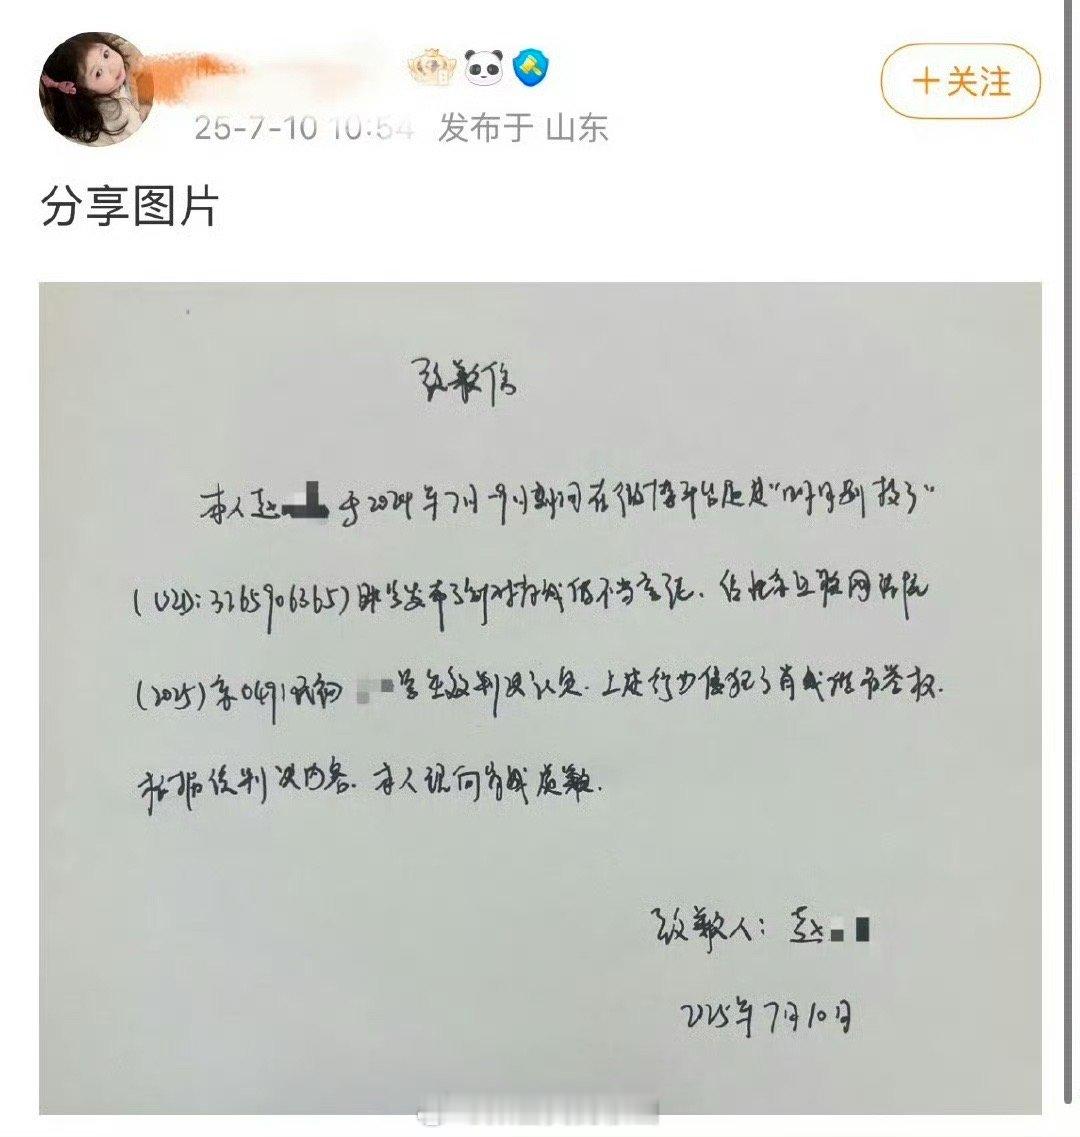 +关注
25-7-10 10:54 发布于 山东
分享图片
致歉信
本人赵 于2024年7月-9月期间在微博平台通过"明月别枝了"
(UID:3265906365)账号发布了针对肖战的不当言论、经北京互联网法院
(2025)京0491民初 号生效判决认定.上述行为侵犯了肖战的名誉权.
根据该判决内容.本人现向肖战致歉.
致歉人:赵
2025年7月10日